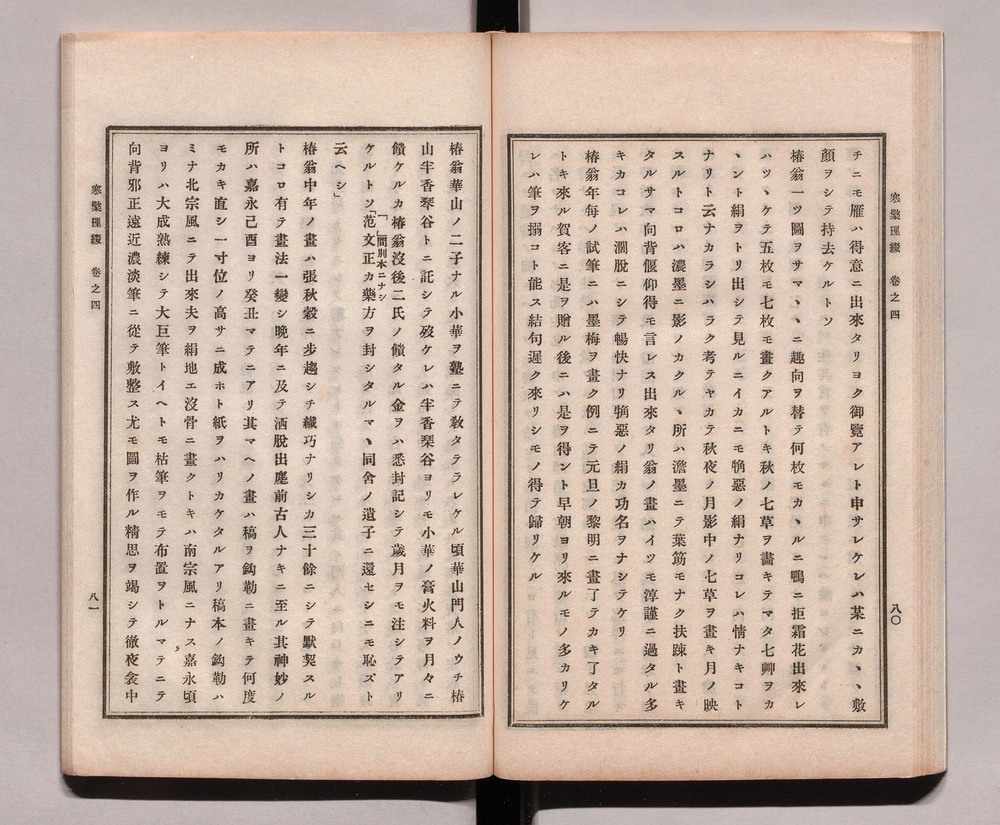 寒檠璅綴　卷之四
八〇
チニモ雁ハ得意ニ出來タリヨク御覽アレト申サレケレハ某ニカヽヽ敷
顏ヲシテ持去ケルトソ
椿翁一ツ圖ヲサマヽヽニ趣向ヲ替テ何枚モカヽルニ鴨ニ拒霜花出來レ
ハツヽケテ五枚モ七枚モ畫クアルトキ秋ノ七草ヲ畵キテマタ七艸ヲカ
ヽント絹ヲトリ出シテ見ルニイカニモ惡ノ絹ナリコレハ情ナキコト
ナリト云ナカラシハラク考テヤカテ秋夜ノ月影中ノ七草ヲ畫キ月ノ映
スルトコロハ濃墨ニ影ノカクルヽ所ハ澹墨ニテ葉筋モナク扶踈ト畫キ
タルサマ向背偃仰得モ言レス出來タリ翁ノ畫ハイツモ淳謹ニ過タル多
キカコレハ濶脫ニシテ暢快ナリ惡ノ絹カ功名ヲナシテケリ
椿翁年每ノ試筆ニハ墨梅ヲ畫ク例ニテ元旦ノ黎明ニ畫了テカキ了タル
トキ來ル賀客ニ是ヲ贈ル後ニハ是ヲ得ント早朝ヨリ來ルモノ多カリケ
レハ筆ヲ搦コト能ス結句遲ク來リシモノ得テ歸リケル
椿翁華山ノ二子ナル小華ヲ塾ニテ敎タテラレケル頃華山門人ノウチ椿
山半香琹谷トニ託シテ歿ケレハ半香琹谷ヨリモ小華ノ膏火料ヲ月々ニ
饋ケルカ椿翁沒後二氏ノ饋タル金ヲハ悉封記シテ歲月ヲモ注シテアリ
ケルトソ「范文正カ藥方ヲ封シタルマヽ同舍ノ遺子ニ還セシニモ恥ズト
「　」間別本ニナシ
云ヘシ」
椿翁中年ノ畫ハ張秋穀ニ步趨シチ纎巧ナリシカ三十餘ニシテ默契スル
トコロ有テ畫法一變シ晩年ニ及テ洒脫出塵前古人ナキニ至ル其神妙ノ
所ハ嘉永己酉ヨリ癸丑マテニアリ其マヘノ畫ハ稿ヲ鈎勒ニ畫キテ何度
モカキ直シ一寸位ノ高サニ成ホト紙ヲハリカケタルアリ稿本ノ鈎勒ハ
ミナ北宗風ニテ出來夫ヲ絹地エ沒骨ニ畫クトキハ南宗風ニナス嘉永頃
ヨリハ大成熟練シテ大巨筆トイヘトモ枯筆ヲモテ布置ヲトルマテニテ
向背邪正遠近濃淡筆ニ從テ敷整ス尤モ圖ヲ作ル精思ヲ竭シテ徹夜衾中
寒檠璅綴　卷之四
八一